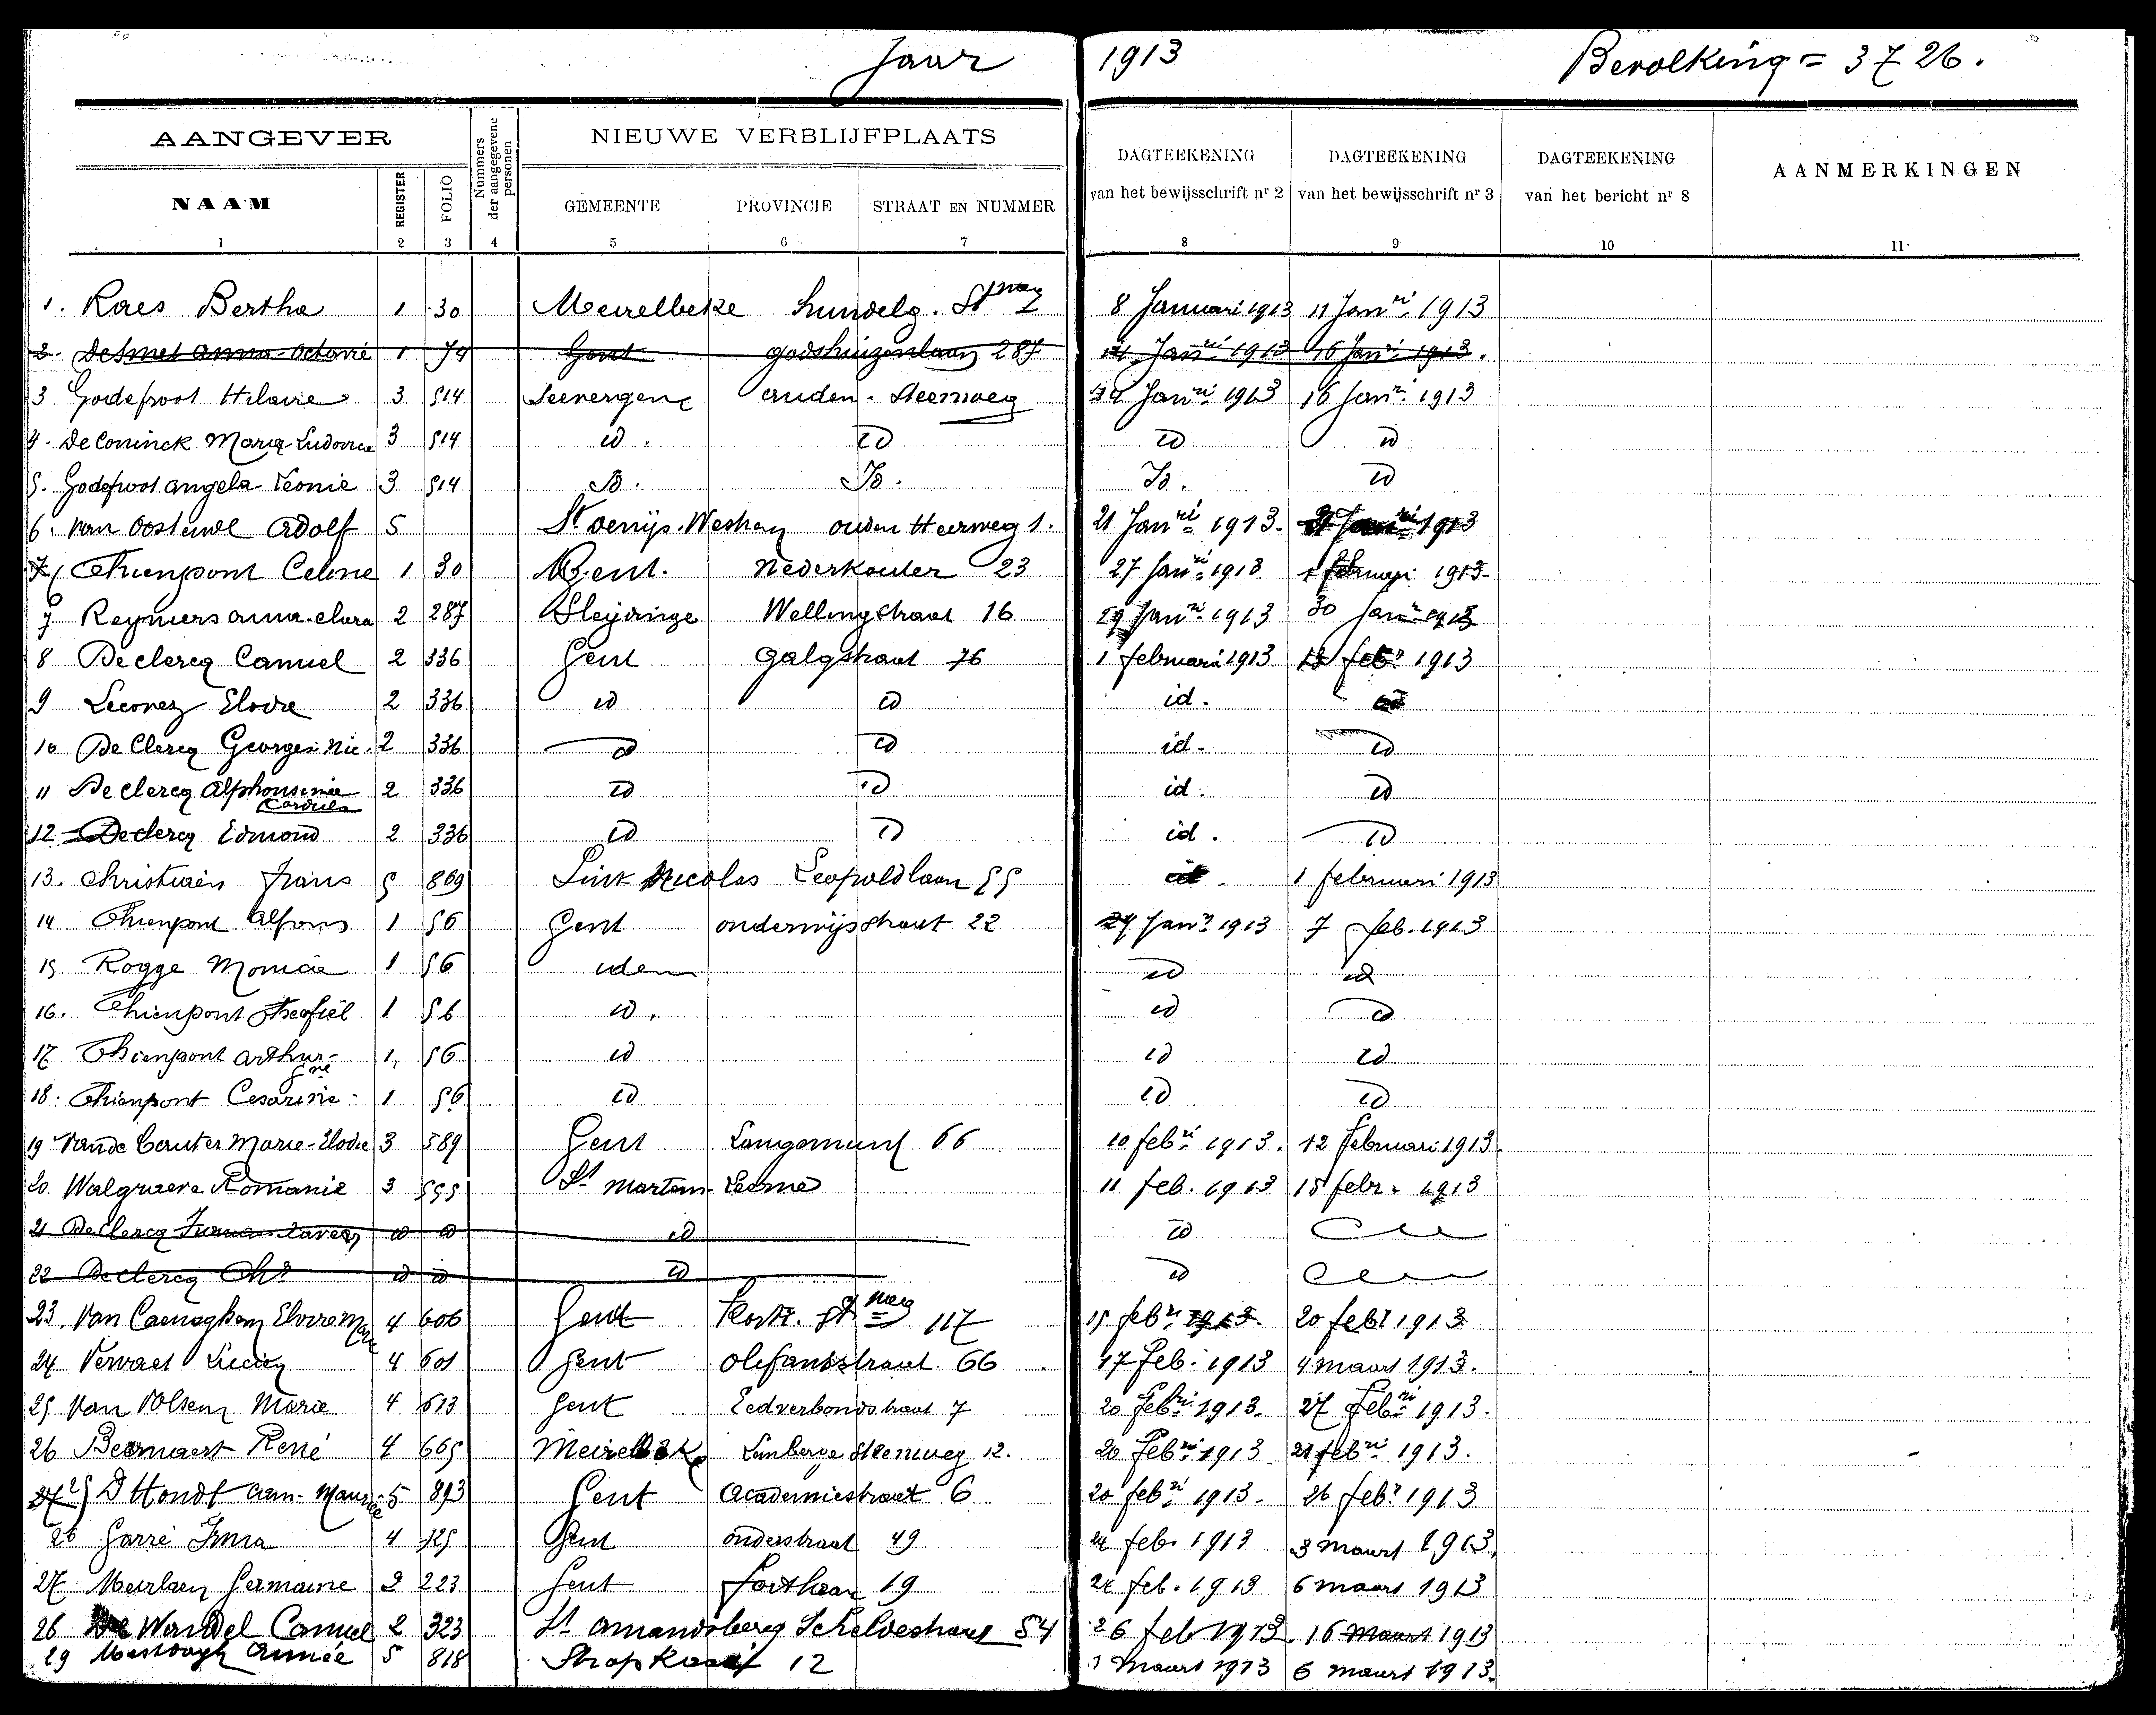 Jaar 1913 Bevolking = 3726.
AANGEVER Nummers der aangegevene personen NIEUWE VERBLIJFPLAATS DAGTEEKENING van het bewijsschrift nr 2 DAGTEEKENING van het bewijsschrift nr 3 DAGTEEKENING van het bericht nr 8 AANMERKINGEN
NAAM REGISTER FOLIO GEMEENTE PROVINCIE STRAAT EN NUMMER
1 2 3 4 5 6 7 8 9 10 11
1. Raes Bertha 1 30 Meirelbeke hundelg. Stweg 8 Januari 1913 11 Janri 1913
2. De Smet Anna-Octavie 1 74 Gent Godshuizenlaan 287 14 Janri 1913 16 Janri 1913.
3 Godefroot Hilaire 3 514 Seevergem ouden Steenweg 14 Janri 1913 16 Janri 1913
4. De Coninck Maria-Ludovica 3 514 id. id id id
5. Godefroot Angela-Leonie 3 514 id. id. id. id
6. Van Oosteinde Adolf 5 St Denijs-Westrem ouden Heerweg 1. 21 Janri 1913. 1913
Thienpont Celine 1 30 Gent. Nederkouter 23 27 Janri 1913 februari 1913
7 Reyniers Anna-Clara 2 287 Sleydinge Wellingstraat 16 29 Janri 1913 30 Janr 1913
8 De Clercq Camiel 2 336 Gent Galgstraat 76 1 februari 1913 febr 1913
9 Leconez Elodie 2 336 id id id. id
10 De Clercq Georges-Nic. 2 336 id id id. id
11 De Clercq Alphonsine Cordula 2 336 id id id. id
12 De Clercq Edmond 2 336 id id id. id
13. Christiaens Frans 5 869 Sint Nicolas Leopoldlaan 55 id. 1 februari 1913
14 Thienpont Alfons 1 56 Gent onderwijsstraat 22 27 Janr 1913 7 feb. 1913
15 Rogge Monica 1 56 idem id id
16. Thienpont Theofiel 1 56 id. id id
17 Thienpont Arthur 1, 56 id id id
18. Thienpont Cesarine 1 56 id id id
19 Vande Cauter Marie-Elodie 3 589 Gent Langemunt 66 10 febri 1913. 12 februari 1913.
20. Walgraeve Romanie 3 595 St Martens-Leerne 11 feb. 1913 15 febr. 1913
21 De Clercq id id id id
22 De Clercq id id id id
23. Van Caeneghem Elvire Marie 4 606 Gent Kortr. Stweg 117 15 febri 1913. 20 febr 1913
24 Vervaet Lucien 4 601 Gent Olifantstraat 66 17 feb. 1913 4 maart 1913.
25 Van Volsem Marie 4 613 Gent Eedverbondstraat 7 20 febri 1913. 27 febri 1913.
26 Beernaert René 4 665 Meirelbeke Lemberge Steenweg 12. 20 febri 1913 21 febri 1913.
27 25) D'Hondt Cam-Maurice 5 893 Gent Academiestraat 6 20 febri 1913. 26 febr 1913
26 Garré Irma 4 725 Gent onderstraat 49 24 feb. 1913 3 maart 1913.
27 Meirlaen Germaine 2 223 Gent Fortlaan 19 24 feb. 1913 6 maart 1913
26 De Wandel Camiel 2 323 St Amandsberg Scheldestraat 54 26 feb 1913. 16 maart 1913
29 Mestdagh Aimée 5 818 Stropkaai 12 1 maart 1913 6 maart 1913.